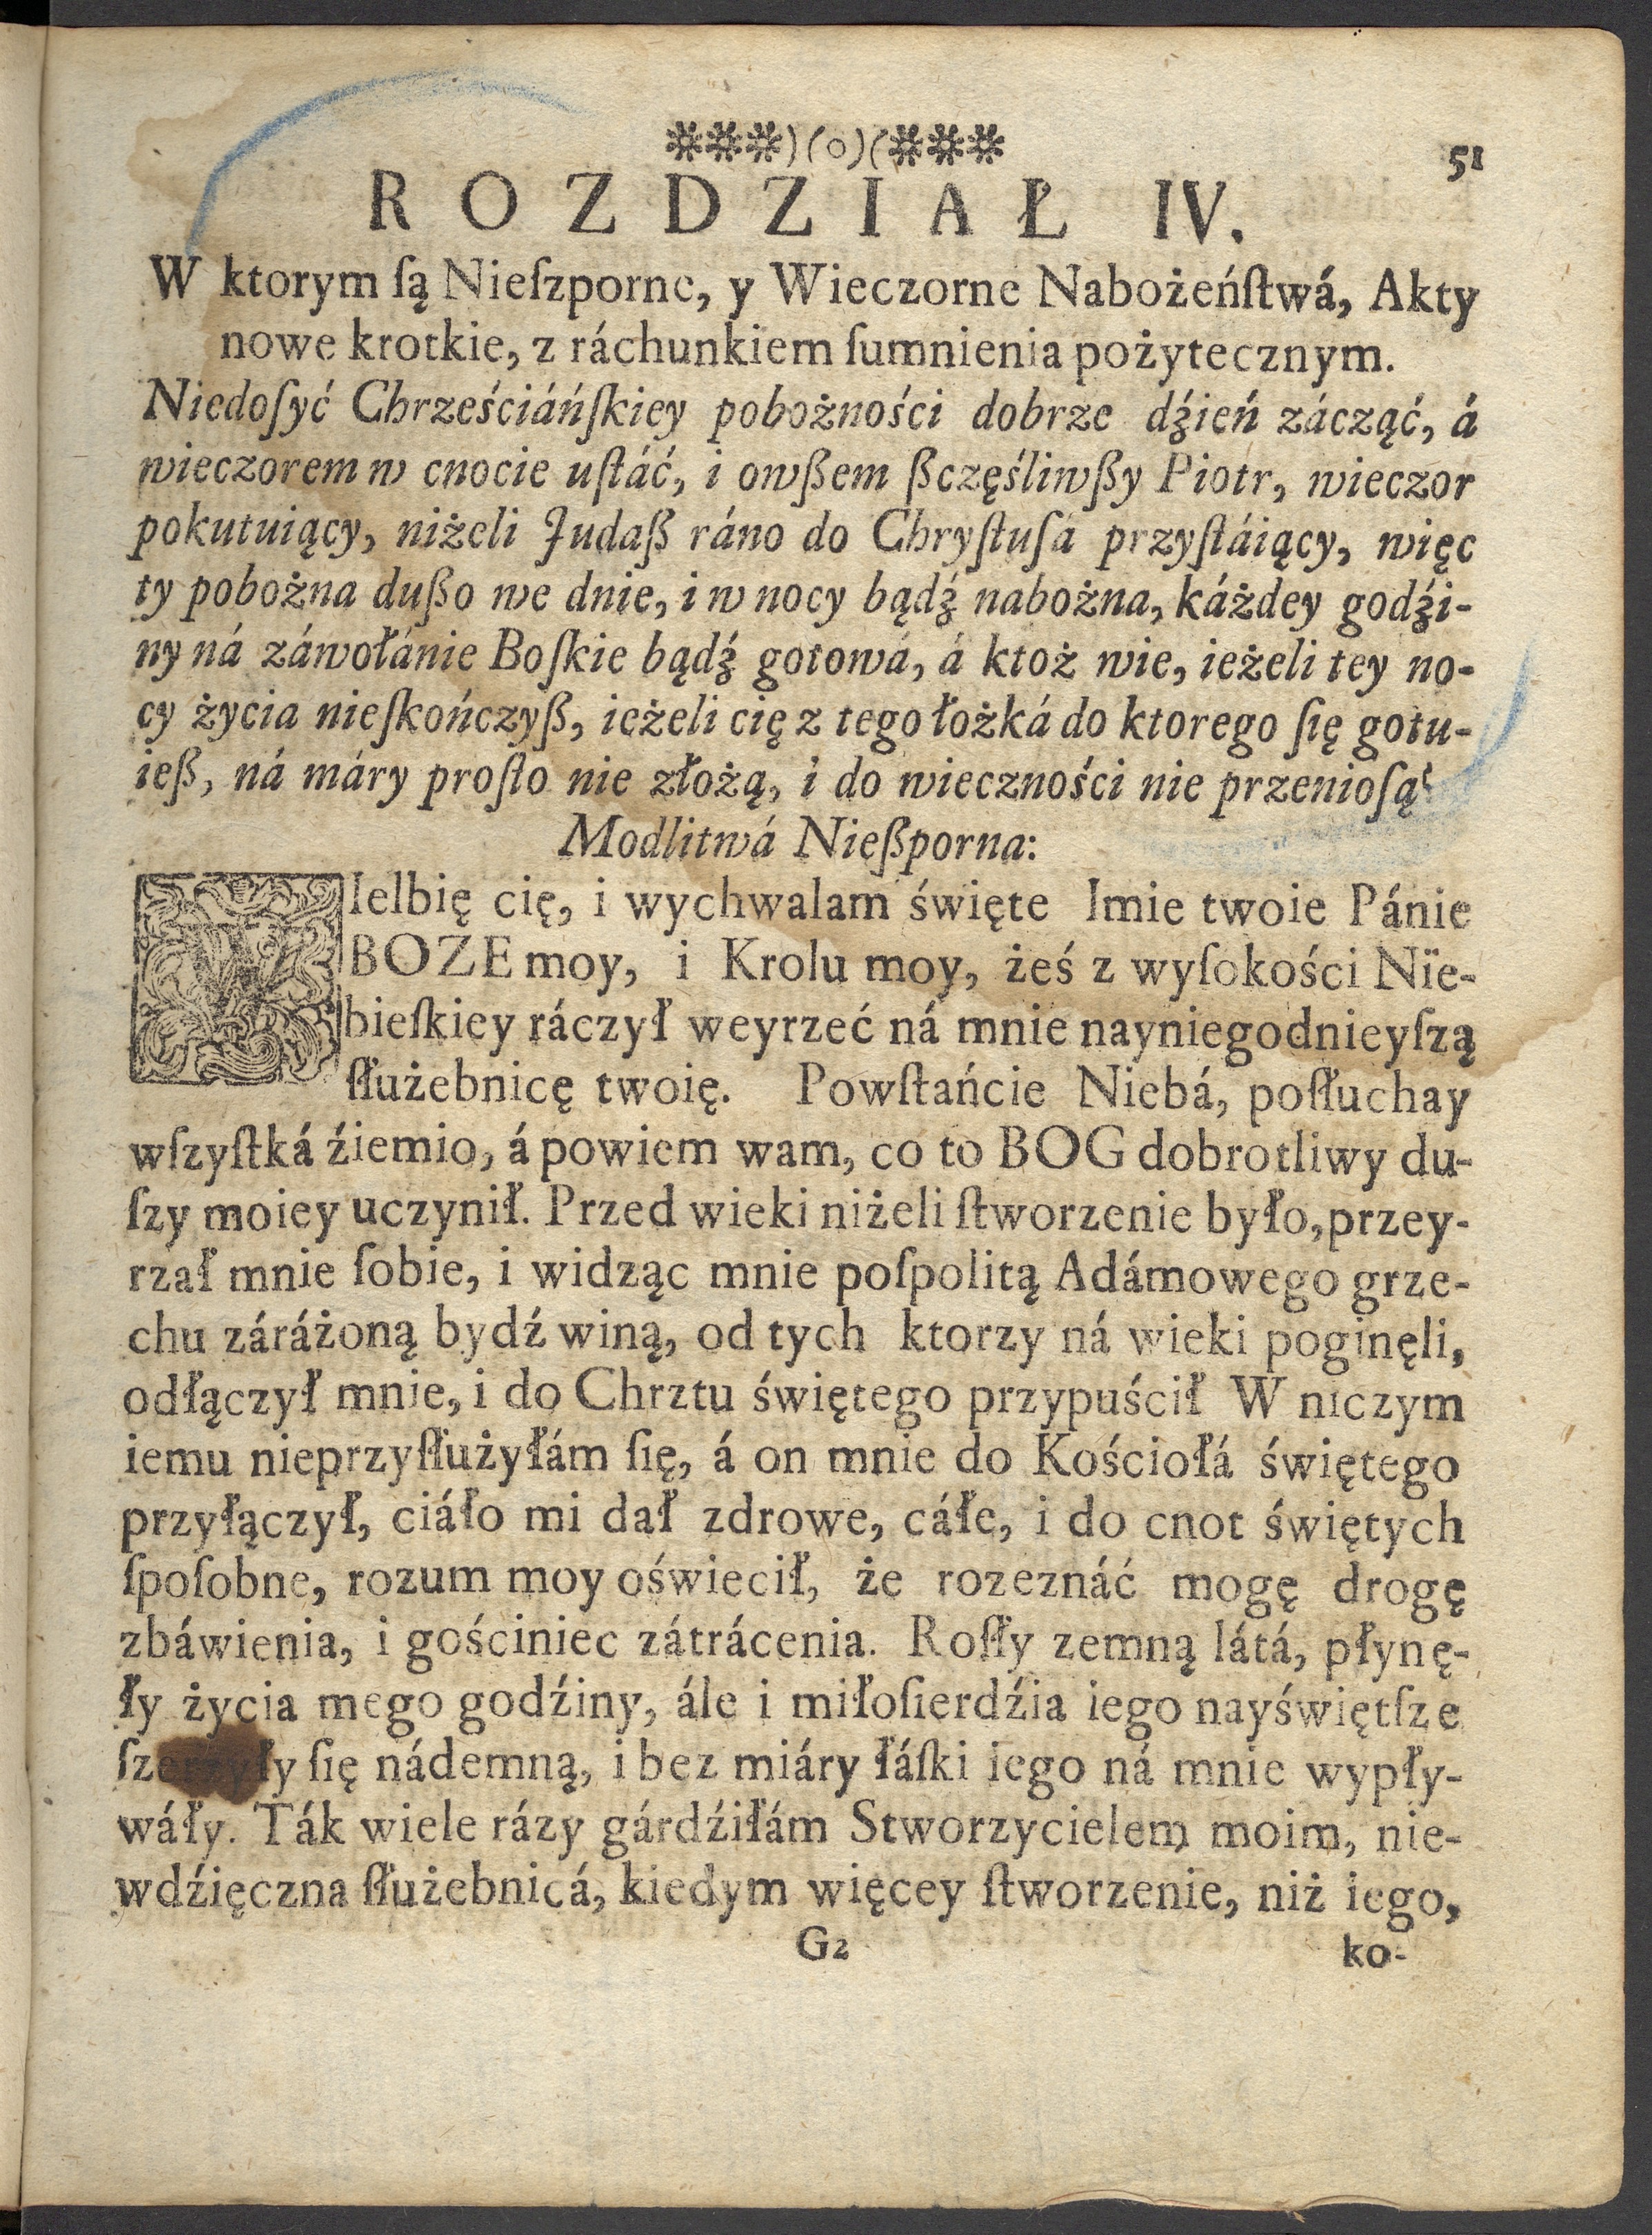 ***)(o)(*** 51
ROZDZIAŁ IV.
W ktorym ſą Nieſzporne, y Wieczorne Nabożeńſtwá, Akty
nowe krotkie, z ráchunkiem ſumnienia pożytecznym.
Niedoſyć Chrześciáńſkiey pobożności dobrze dźień zácząć, á
wieczorem w cnocie uſtáć, i owßem ßczęśliwßy Piotr, wieczor
pokutuiący, niżeli Judaß ráno do Chryſtuſa przyſtáiący, więc
ty pobożna dußo we dnie, i w nocy bądź nabożna, káżdey godźi-
ny ná záwołánie Boſkie bądź gotowá, á ktoż wie, ieżeli tey no-
cy życia nieſkończyß, ieżeli cię z tego łożká do ktorego ſię gotu-
ieß, ná máry proſto nie złożą, i do wieczności nie przenioſą?
Modlitwá Nießporna:
WIelbię cię, i wychwalam święte Imie twoie Pánie
BOZE moy, i Krolu moy, żeś z wyſokości Nïe-
bieſkiey ráczył weyrzeć ná mnie nayniegodnieyſzą
ſłużebnicę twoię. Powſtańcie Niebá, poſłuchay
wſzyſtká źiemio, á powiem wam, co to BOG dobrotliwy du-
ſzy moiey uczynił. Przed wieki niżeli ſtworzenie było, przey-
rzał mnie ſobie, i widząc mnie poſpolitą Adámowego grze-
chu zárážoną bydź winą, od tych ktorzy ná wieki poginęli,
odłączył mnie, i do Chrztu świętego przypuścił W niczym
iemu nieprzyſłużyłám ſię, á on mnie do Kościołá świętego
przyłączył, ciáło mi dał zdrowe, cáłe, i do cnot świętych
ſpoſobne, rozum moy oświecił, że rozeznáć mogę drogę
zbáwienia, i gościniec zátrácenia. Roſły zemną látá, płynę-
ły życia mego godźiny, ále i miłoſierdźia iego nayświętſze
ſzerzyły ſię nádemną, i bez miáry łáſki iego ná mnie wypły-
wáły. Ták wiele rázy gárdźiłám Stworzycielem moim, nie-
wdźięczna ſłużebnicá, kiedym więcey ſtworzenie, niż iego,
G2 ko-